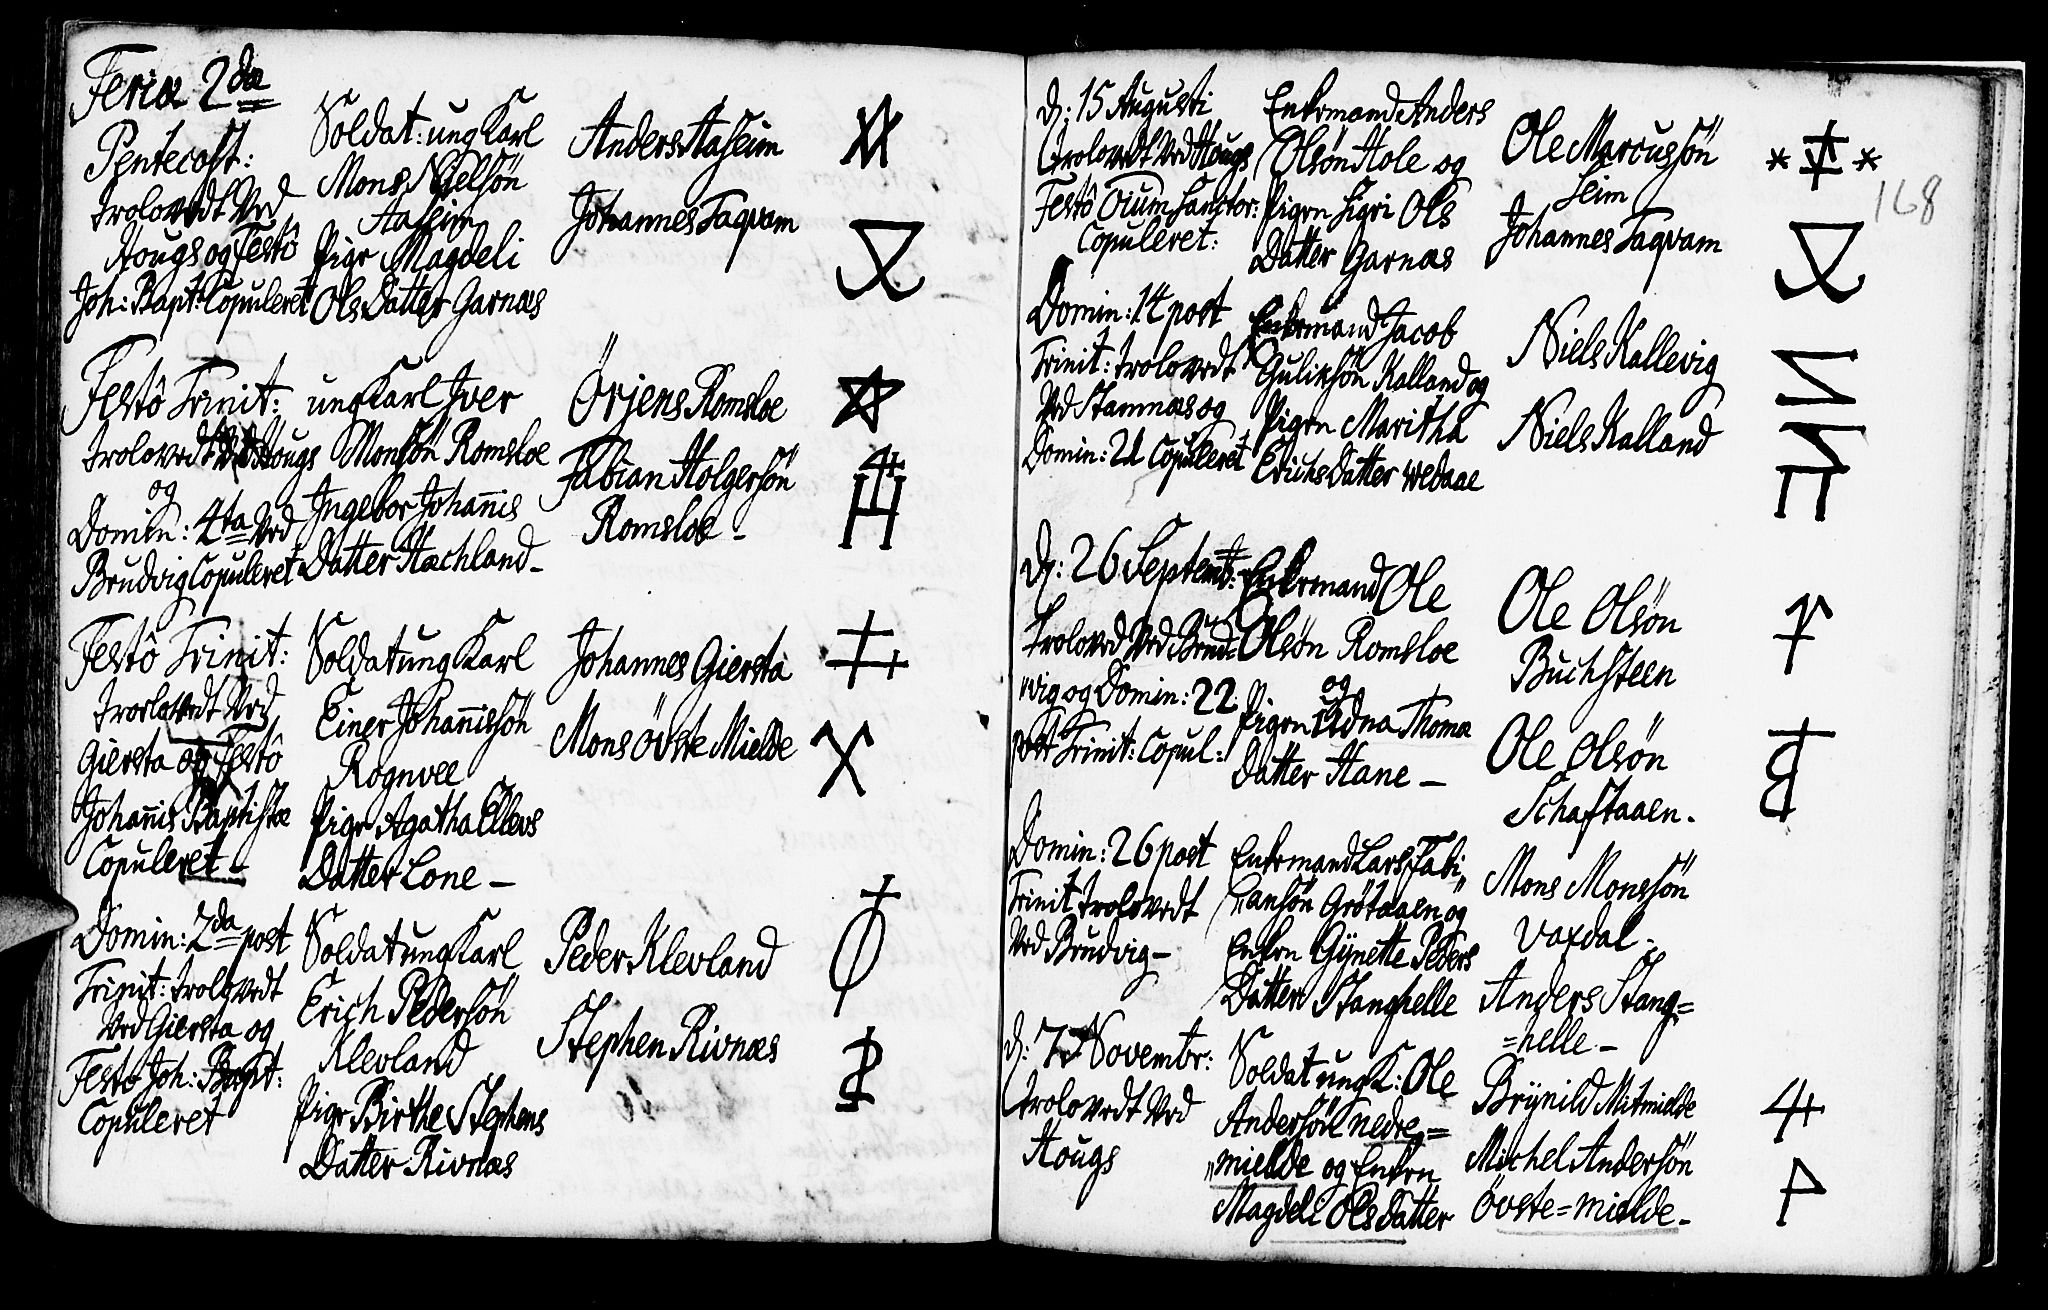 Feria 2da
Pentecost:
trolovedt Ved
Hougs og Festô
Joh: Bapt: Copuleret
Soldat: ung Karl
Mons Nielsön
Aaseim
Pige Magdeli
Ols Datter Garnæs
Anders Aaseim
Johannes Taqvam
Festô Trinit:
trolovedt Ved Hougs
og
Domin: 4ta Ved
Brudvig Copuleret
ung Karl Iver
Monsön Romsloe
Ingebor Johañis
Datter Hæchland -
Örjens Romsloe
Fabian Holgersön
Romsloe -
Festô Trinit:
trorlovedt Ved
Giersta og Festô
Johañis Baptistæ
Copuleret -
Soldat ung Karl
Einer Johañissön
Rognvee
Pige Agatha Ellevs
Datter Lone -
Johannes Giersta
Mons Övste Mielde
Domin: 2da post
Trinit: trolovedt
Ved Giersta og
Festô Joh: Bapt:
Copuleret
Soldat ung Karl
Erich Pedersön
Klevland
Pige Birthe Stephens
Datter Rivnæs
Peder Klevland
Stephen Rivnæs
168
D: 15 Augusti
trolovedt Ved Hougs
Festô Oium Sanctor:
Copuleret:
Enkemand Anders
Olsön Hole og
Pigen Sigri Ols
Datter Garnæs
Ole Marcussön
Seim
Johannes Taqvam
Domin: 14 post
Trinit: trolovedt
Ved Stamnæs og
Domin: 21 Copuleret
Enkemand Jacob
Guliksön Kalland og
Pigen Maritha
Erichs Datter Wedaae
Niels Kallevig
Niels Kalland
D: 26 Septembr:
trolovd Ved Brud=
vig og Domin: 22
post Trinit: Copul:
Enkemand Ole
Olsön Romsloe
og
Pigen Udna Thomæ
Datter Hane -
Ole Olsön
Buchsteen
Ole Olsön
Schaftaaen.
Domin: 26 post
Trinit trolovedt
Ved Brudvig -
Enkemand Lars Fabi„
„ansön Grötaaen og
Enken Gÿnette Peders
Datter Stanghelle
Mons Monssön
Vaxdal -
Anders Stang=
=helle -
D: 7 Novembr:
trolovedt Ved
Hougs
Soldat ung K: Ole
Andersön nedre=
„mielde og Enken
Magdeli Ols Datter
Brÿnild Mitmielde
Michel Andersön
Övste=mielde -